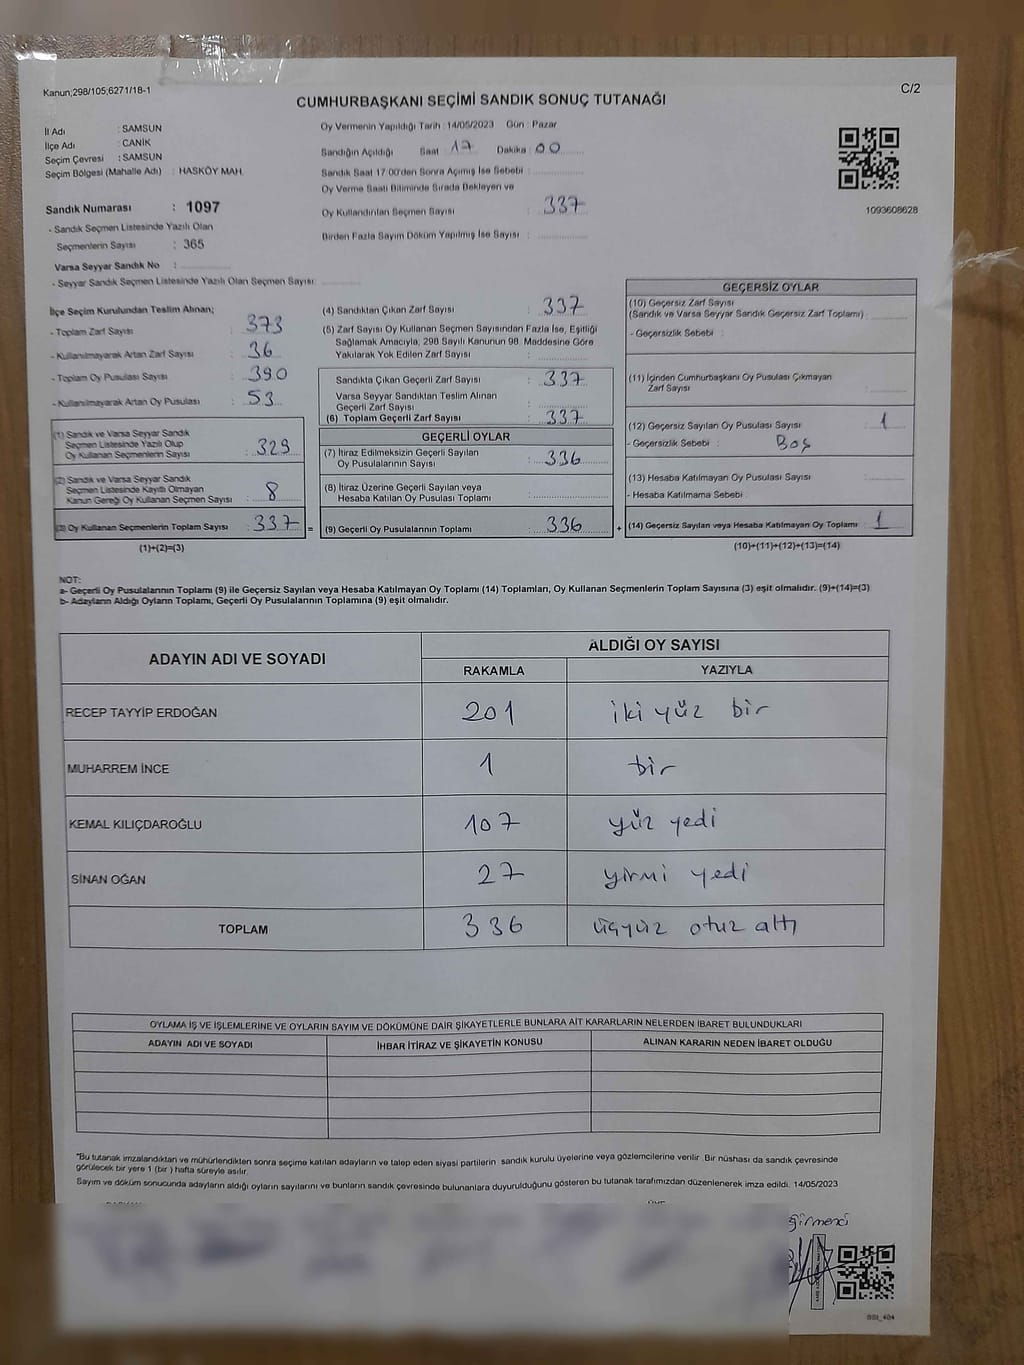 Kanun;298/105;6271/18-1
C/2
CUMHURBAŞKANI SEÇİMİ SANDIK SONUÇ TUTANAĞI
İl Adı : SAMSUN
İlçe Adı : CANİK
Seçim Çevresi : SAMSUN
Seçim Bölgesi (Mahalle Adı) : HASKÖY MAH.
Sandık Numarası : 1097
- Sandık Seçmen Listesinde Yazılı Olan
Seçmenlerin Sayısı : 365
Varsa Seyyar Sandık No :
- Seyyar Sandık Seçmen Listesinde Yazılı Olan Seçmen Sayısı:
Oy Vermenin Yapıldığı Tarih : 14/05/2023 Gün : Pazar
Sandığın Açıldığı Saat : 17 Dakika : 00
Sandık Saat 17:00'den Sonra Açımış İse Sebebi :
Oy Verme Saati Bitiminde Sırada Bekleyen ve
Oy Kullandırılan Seçmen Sayısı : 337
Birden Fazla Sayım Döküm Yapılmış İse Sayısı :
1093608628
İlçe Seçim Kurulundan Teslim Alınan;
- Toplam Zarf Sayısı : 373
- Kullanılmayarak Artan Zarf Sayısı : 36
- Toplam Oy Pusulası Sayısı : 390
- Kullanılmayarak Artan Oy Pusulası : 53
(1) Sandık ve Varsa Seyyar Sandık
Seçmen Listesinde Yazılı Olup
Oy Kullanan Seçmenlerin Sayısı : 329
(2) Sandık ve Varsa Seyyar Sandık
Seçmen Listesinde Kayıtlı Olmayan
Kanun Gereği Oy Kullanan Seçmen Sayısı : 8
(3) Oy Kullanan Seçmenlerin Toplam Sayısı : 337 =
(1)+(2)=(3)
(4) Sandıktan Çıkan Zarf Sayısı : 337
(5) Zarf Sayısı Oy Kullanan Seçmen Sayısından Fazla İse, Eşitliği
Sağlamak Amacıyla, 298 Sayılı Kanunun 98. Maddesine Göre
Yakılarak Yok Edilen Zarf Sayısı :
Sandıkta Çıkan Geçerli Zarf Sayısı : 337
Varsa Seyyar Sandıktan Teslim Alınan
Geçerli Zarf Sayısı :
(6) Toplam Geçerli Zarf Sayısı : 337
GEÇERLİ OYLAR
(7) İtiraz Edilmeksizin Geçerli Sayılan
Oy Pusulalarının Sayısı : 336
(8) İtiraz Üzerine Geçerli Sayılan veya
Hesaba Katılan Oy Pusulası Toplamı :
(9) Geçerli Oy Pusulalarının Toplamı : 336 +
GEÇERSİZ OYLAR
(10) Geçersiz Zarf Sayısı
(Sandık ve Varsa Seyyar Sandık Geçersiz Zarf Toplamı) :
- Geçersizlik Sebebi :
(11) İçinden Cumhurbaşkanı Oy Pusulası Çıkmayan
Zarf Sayısı :
(12) Geçersiz Sayılan Oy Pusulası Sayısı : 1
- Geçersizlik Sebebi : Boş
(13) Hesaba Katılmayan Oy Pusulası Sayısı :
- Hesaba Katılmama Sebebi :
(14) Geçersiz Sayılan veya Hesaba Katılmayan Oy Toplamı : 1
(10)+(11)+(12)+(13)=(14)
NOT:
a- Geçerli Oy Pusulalarının Toplamı (9) ile Geçersiz Sayılan veya Hesaba Katılmayan Oy Toplamı (14) Toplamları, Oy Kullanan Seçmenlerin Toplam Sayısına (3) eşit olmalıdır. (9)+(14)=(3)
b- Adayların Aldığı Oyların Toplamı, Geçerli Oy Pusulalarının Toplamına (9) eşit olmalıdır.
ADAYIN ADI VE SOYADI
ALDIĞI OY SAYISI
RAKAMLA YAZIYLA
RECEP TAYYİP ERDOĞAN 201 iki yüz bir
MUHARREM İNCE 1 bir
KEMAL KILIÇDAROĞLU 107 yüz yedi
SİNAN OĞAN 27 yirmi yedi
TOPLAM 336 üçyüz otuz altı
OYLAMA İŞ VE İŞLEMLERİNE VE OYLARIN SAYIM VE DÖKÜMÜNE DAİR ŞİKAYETLERLE BUNLARA AİT KARARLARIN NELERDEN İBARET BULUNDUKLARI
ADAYIN ADI VE SOYADI İHBAR İTİRAZ VE ŞİKAYETİN KONUSU ALINAN KARARIN NEDEN İBARET OLDUĞU
"Bu tutanak imzalandıktan ve mühürlendikten sonra seçime katılan adayların ve talep eden siyasi partilerin sandık kurulu üyelerine veya gözlemcilerine verilir. Bir nüshası da sandık çevresinde
görülecek bir yere 1 (bir ) hafta süreyle asılır.
Sayım ve döküm sonucunda adayların aldığı oyların sayılarını ve bunların sandık çevresinde bulunanlara duyurulduğunu gösteren bu tutanak tarafımızdan düzenlenerek imza edildi. 14/05/2023